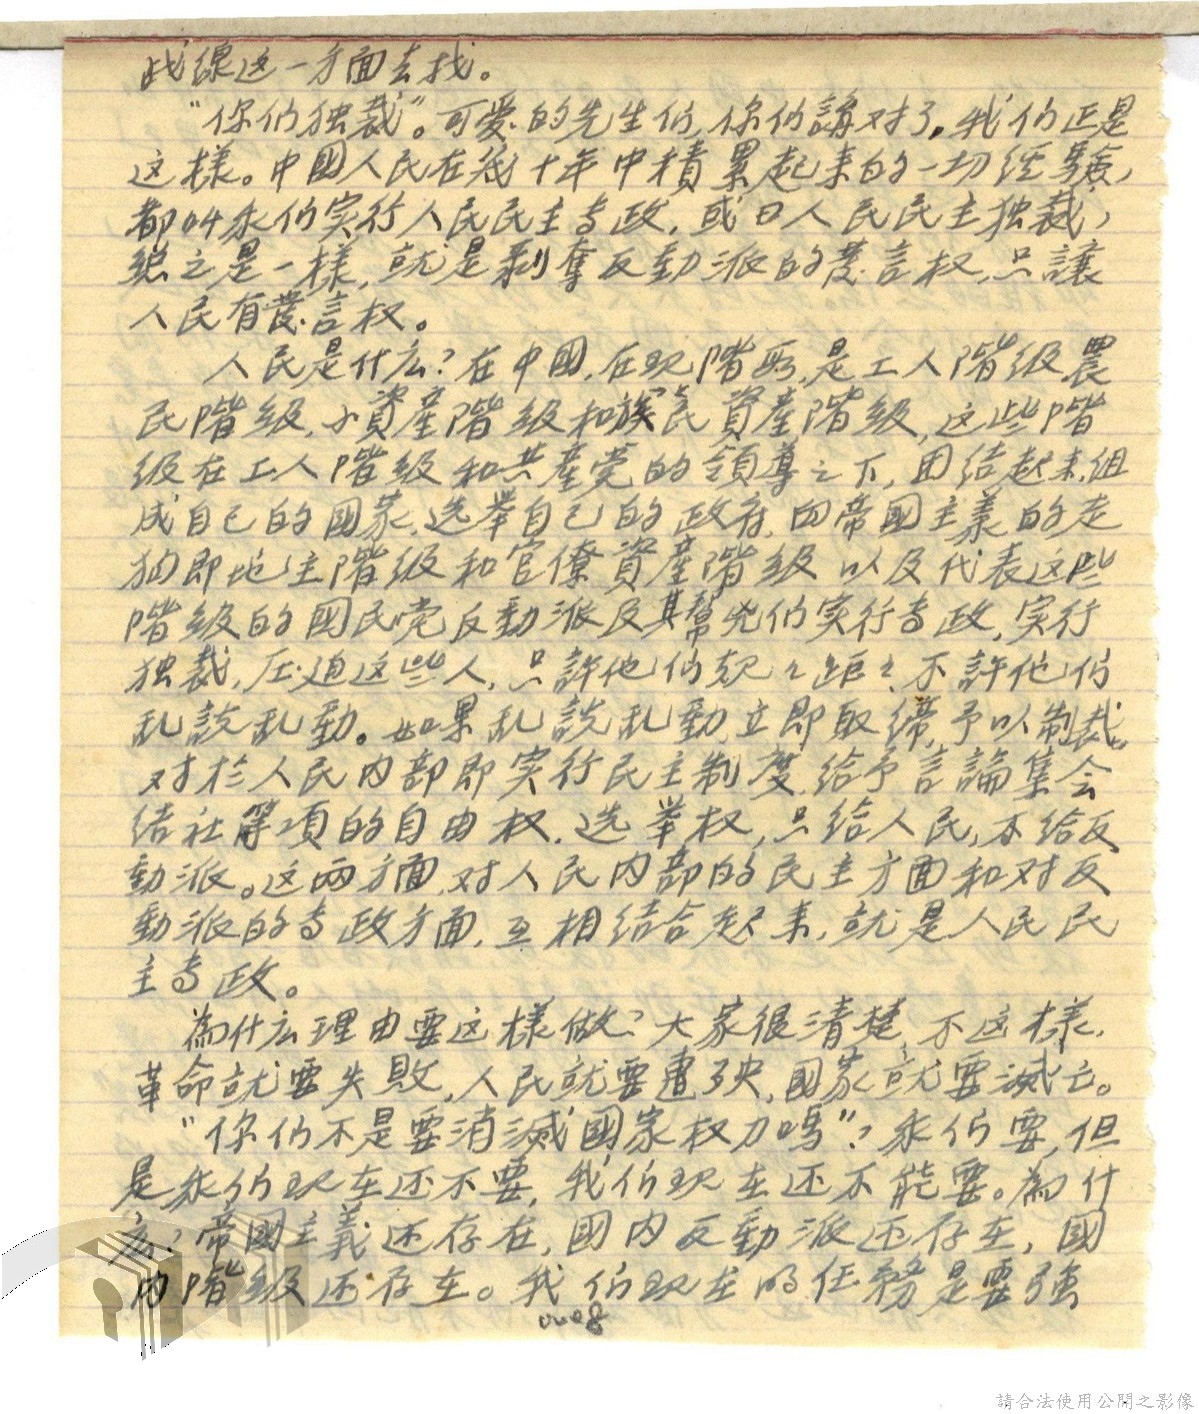 战線这一方面去找。
"你们独裁"。可爱的先生们,你们講对了,我们正是
这樣。中國人民在幾十年中積累起来的一切経驗,
都叫我们实行人民民主专政,或曰人民民主独裁,
總之是一樣,就是剥奪反動派的發言权,只讓
人民有發言权。
人民是什么?在中國,在现階段,是工人階级,農
民階级,小資産階级和族民資産階级,这些階
级在工人階级和共産党的領導之下,团结起来,组
成自己的國家,选举自己的政府,向帝國主義的走
狗即地主階级和官僚資産階级以及代表这些
階级的國民党反動派及其幫兇们实行专政,实行
独裁,压迫这些人,只許他们规々距々,不許他们
乱說乱動。如果乱說乱動,立即取缔,予以制裁。
对於人民内部即实行民主制度,给予言論集会
结社等項的自由权,选举权,只给人民,不给反
動派。这两方面,对人民内部的民主方面和对反
動派的专政方面,互相结合起来,就是人民民
主专政。
為什么理由要这樣做?大家很清楚,不这樣,
革命就要失敗,人民就要遭殃,國家就要滅亡。
"你们不是要消滅國家权力嗎"?我们要,但
是我们现在还不要,我们现在还不能要。為什
么?帝國主義还存在,國内反動派还存在,國
内階级还存在。我们现在的任務是要強
0008
請合法使用公開之影像